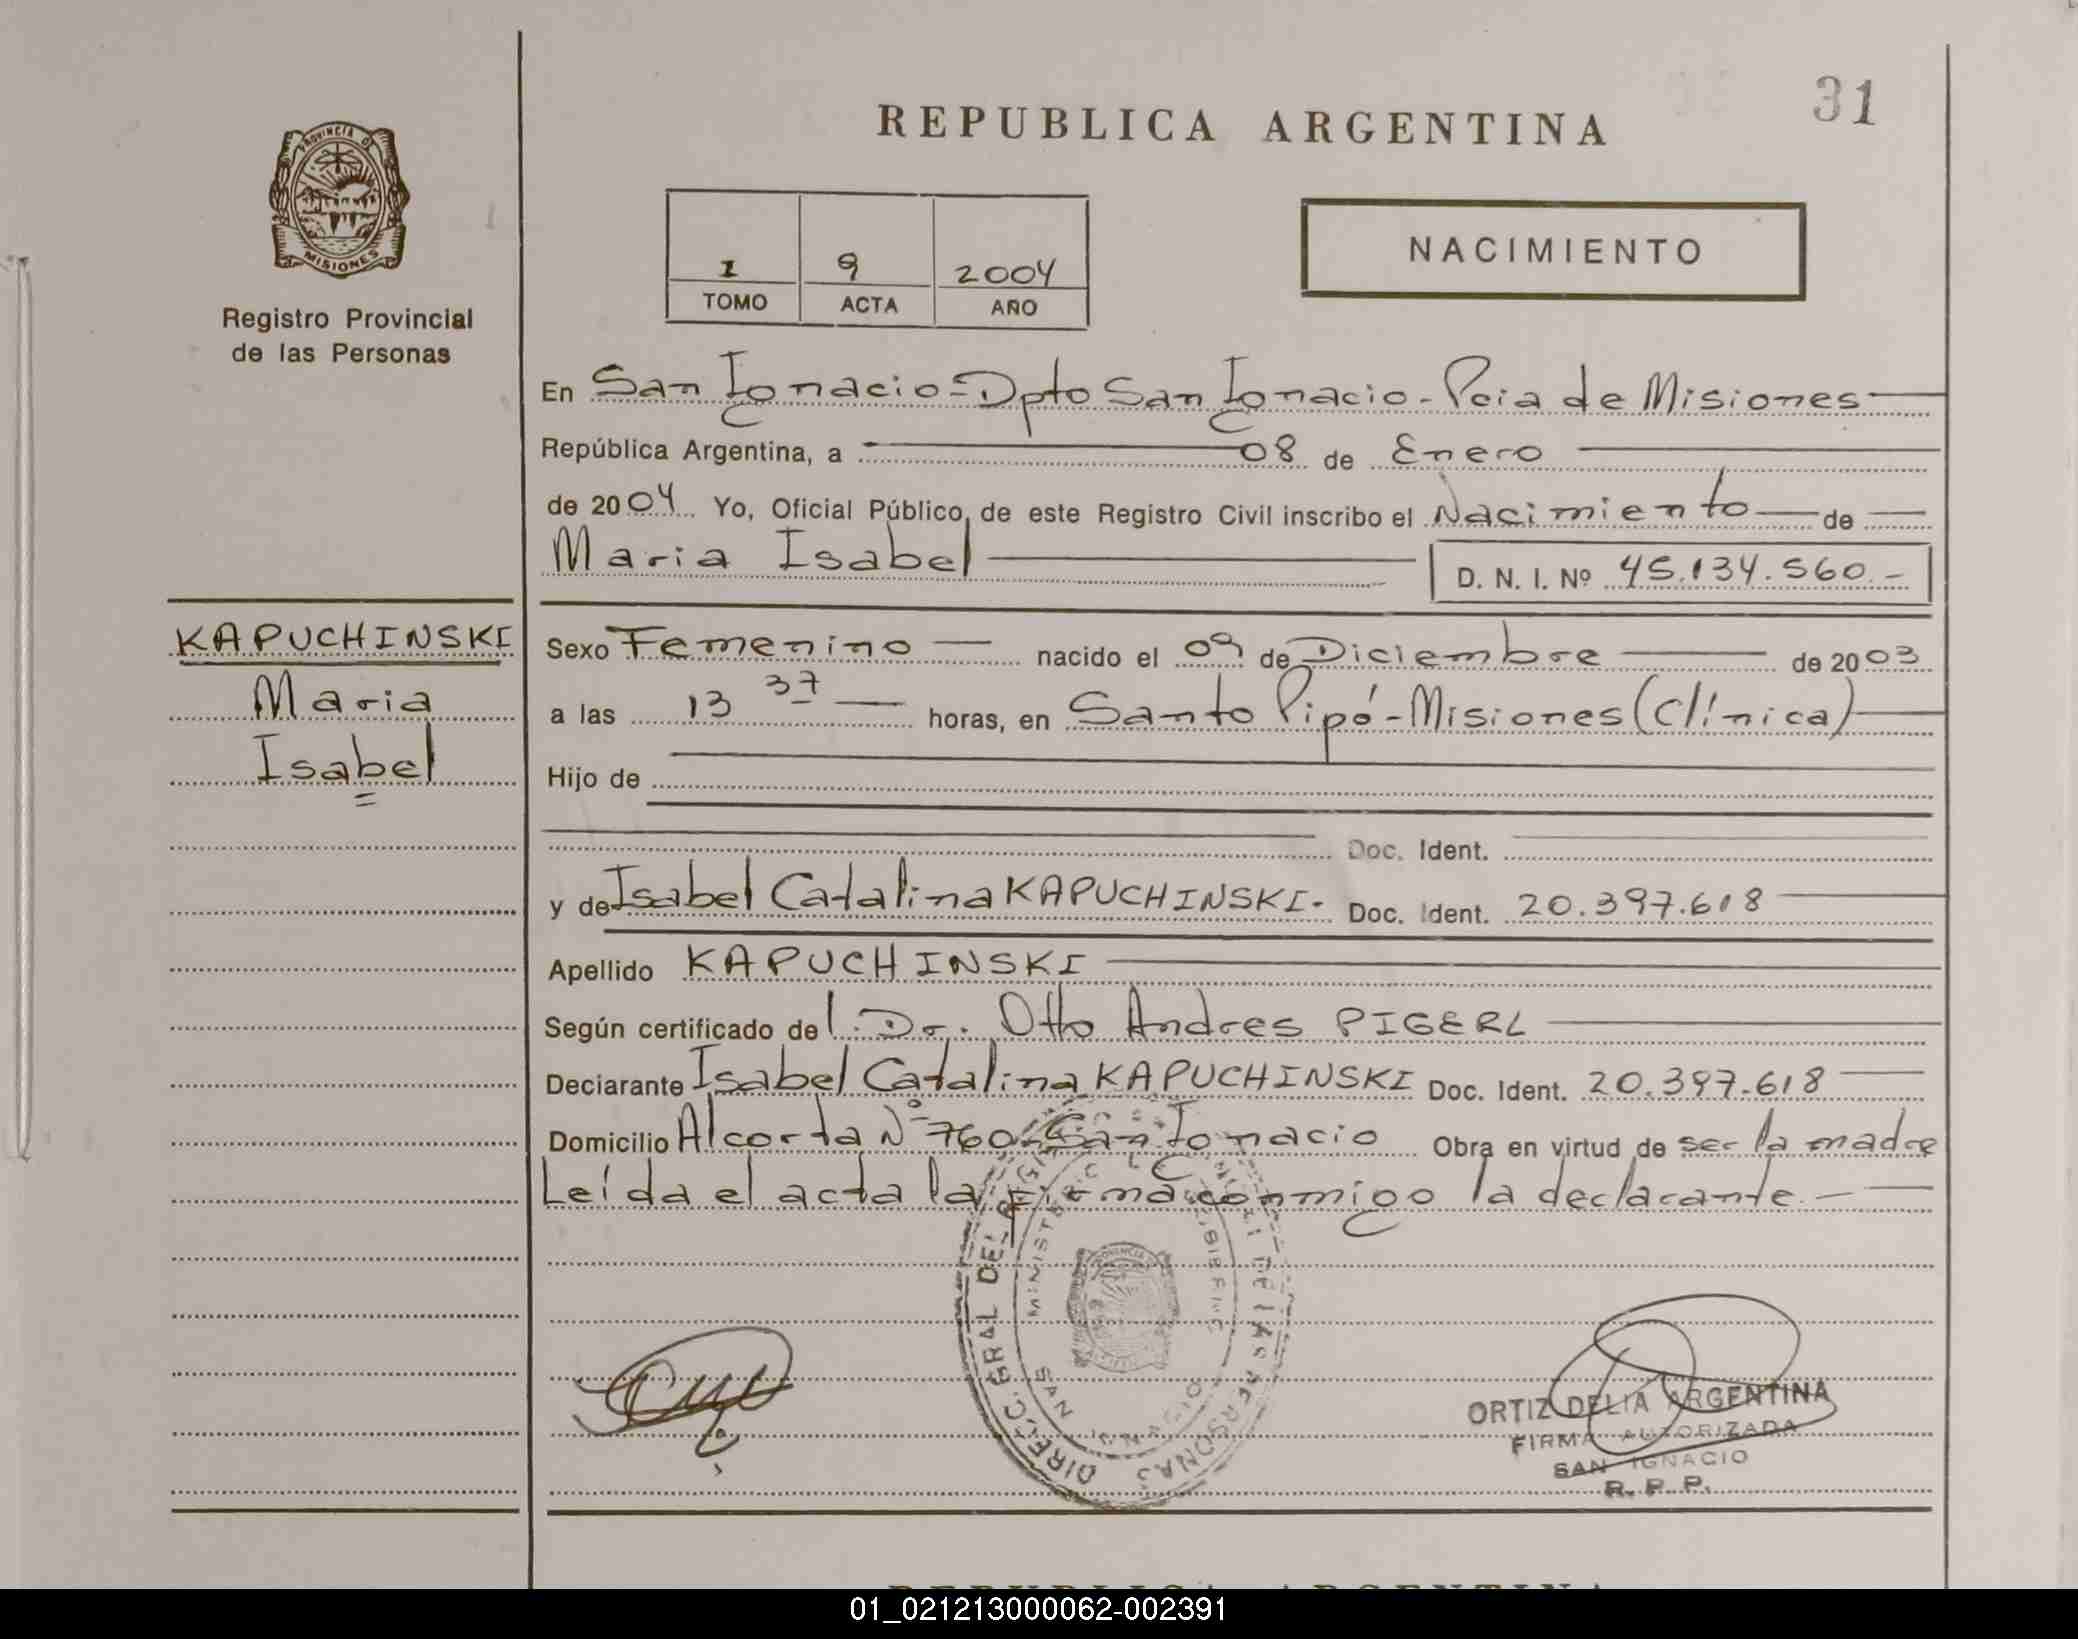 31
REPUBLICA ARGENTINA
PROVINCIA DE
MISIONES
Registro Provincial
de las Personas
1 9 2004
TOMO ACTA AÑO
NACIMIENTO
En San Ignacio - Dpto San Ignacio - Pcia de Misiones
República Argentina, a 08 de Enero
de 2004 Yo, Oficial Público, de este Registro Civil inscribo el Nacimiento de
Maria Isabel D. N. I. Nº 45.134.560.-
KAPUCHINSKI
Maria
Isabel
Sexo Femenino nacido el 09 de Diciembre de 2003
a las 13 37 horas, en Santo Pipó - Misiones (Clínica)
Hijo de
Doc. Ident.
y de Isabel Catalina KAPUCHINSKI. Doc. Ident. 20.397.618
Apellido KAPUCHINSKI
Según certificado del Dr. Otto Andres PIGERL
Declarante Isabel Catalina KAPUCHINSKI Doc. Ident. 20.397.618
Domicilio Alcorta Nº 760 - San Ignacio Obra en virtud de ser la madre
Leída el acta la firma conmigo la declarante. -
DIRECC. GRAL DEL REGI DE LAS PERSONAS
MINISTERIO
SAN IGNACIO
ORTIZ DELIA ARGENTINA
FIRMA AUTORIZADA
SAN IGNACIO
R. P. P.
REPUBLICA ARGENTINA
01_021213000062-002391